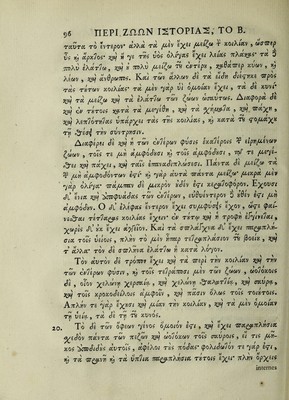 96 ΠΕΡΙ ΖΩΩΝ ΙΣΤΟΡΙΑΣ, ΤΟ Β.
ταῦτα τὸ ἔντερον· ἀλλὰ τὰ μὲν ἔχει μείζω τὴν κοιλίαν, ὥσπερ
ὗς καὶ ἄρκτος· καὶ ἥ γε τῆς ὑὸς ὀλίγας ἔχει λείας πλάκας· τὰ δὲ
πολὺ ἐλάττω, καὶ οὐ πολὺ μείζω τοῦ ἐντέρου, καθάπερ κύων, καὶ
λέων, καὶ ἄνθρωπος. Καὶ τῶν ἄλλων δὲ τὰ εἴδη διέστηκε πρὸς
τὰς τούτων κοιλίας· τὰ μὲν γὰρ ὑὶ ὁμοίαν ἔχει, τὰ δὲ κυνὶ
καὶ τὰ μείζω καὶ τὰ ἐλάττω τῶν ζώων ὡσαύτως. Διαφορὰ δὲ
καὶ ἐν τούτοις κατὰ τὰ μεγέθη, καὶ τὰ σχήματα, καὶ πάχη
καὶ λεπτότητας ὑπάρχει τὰς τῆς κοιλίας, καὶ κατὰ τοῦ στομάχου
τῇ θέσει τὴν σύντρησιν.
Διαφέρει δὲ καὶ ἡ τῶν ἐντέρων φύσις ἑκατέροις τῶν εἰρημένων
ζώων, τοῖς τε μὴ ἀμφώδουσι καὶ τοῖς ἀμφώδουσι, τῷ τε μεγέ-
θει καὶ πάχει, καὶ ταῖς ἐπαναδιπλώσεσι. Πάντα δὲ μείζω τὰ
τῶν μὴ ἀμφωδόντων ἐστί· καὶ γὰρ αὐτὰ πάντα μείζω· μικρὰ μὲν
γὰρ ὀλίγα· πάμπαν δὲ μικρὸν οὐδέν ἐστι κερατοφόρον. Ἔχουσι
δ' ἔνια καὶ ἀποφυάδας τῶν ἐντέρων, εὐθυέντερον δ' οὐθέν ἐστι μὴ
ἀμφώδουν. Ὁ δ' ἐλέφας ἔντερον ἔχει συμφύσεις ἔχον, ὥστε φαί-
νεσθαι τέτταρας κοιλίας ἔχειν· ἐν τούτῳ καὶ ἡ τροφὴ ἐγγίνεται,
χωρὶς δ' οὐκ ἔχει ἀγγεῖον. Καὶ τὰ σπλάγχνα δ' ἔχει παραπλή-
σια τοῖς ὑείοις, πλὴν τὸ μὲν ἧπαρ τετραπλάσιον τοῦ βοείου, καὶ
τἆλλα· τὸν δὲ σπλῆνα ἐλάττω ἢ κατὰ λόγον.
Τὸν αὐτὸν δὲ τρόπον ἔχει καὶ τὰ περὶ τὴν κοιλίαν καὶ τὴν
τῶν ἐντέρων φύσιν, καὶ τοῖς τετράποσι μὲν τῶν ζώων, ὠοτόκοις
δὲ, οἷον χελώνῃ χερσαίᾳ, καὶ χελώνῃ θαλαττίᾳ, καὶ σαύρᾳ,
καὶ τοῖς κροκοδείλοις ἀμφοῖν, καὶ πᾶσιν ὅλως τοῖς τοιούτοις.
Ἁπλῆν τε γὰρ ἔχει καὶ μίαν τὴν κοιλίαν, καὶ τὰ μὲν ὁμοίαν
τῇ ὑείᾳ, τὰ δὲ τῇ τοῦ κυνός.
20. Τὸ δὲ τῶν ὄφεων γένος ὅμοιόν ἐστι, καὶ ἔχει παραπλήσια
σχεδὸν πάντα τῶν πεζῶν καὶ ὠοτόκων τοῖς σαύροις, εἴ τις μῆ-
κος ἀποδοὺς αὐτοῖς, ἀφέλοι τοὺς πόδας· φολιδωτόν τε γάρ ἐστι,
καὶ τὰ πρανῆ καὶ τὰ ὕπτια παραπλήσια τούτοις ἔχει· πλὴν ὄρχεις
internea